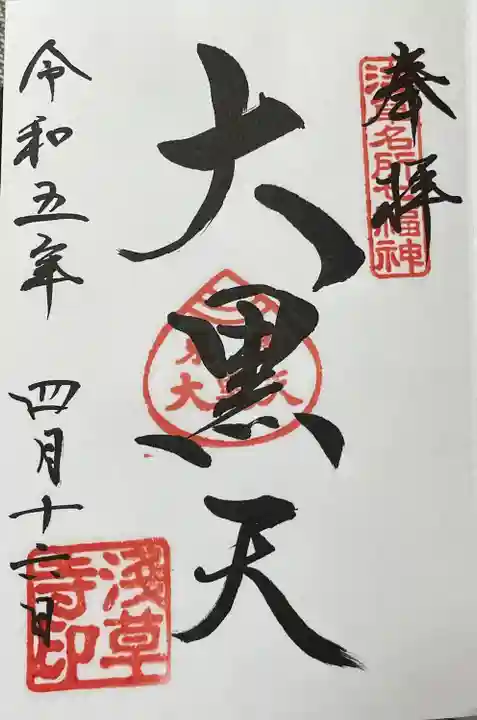 奉拝
浅草名所七福神
大黒天
令和五年 四月十六日
淺草
寺印